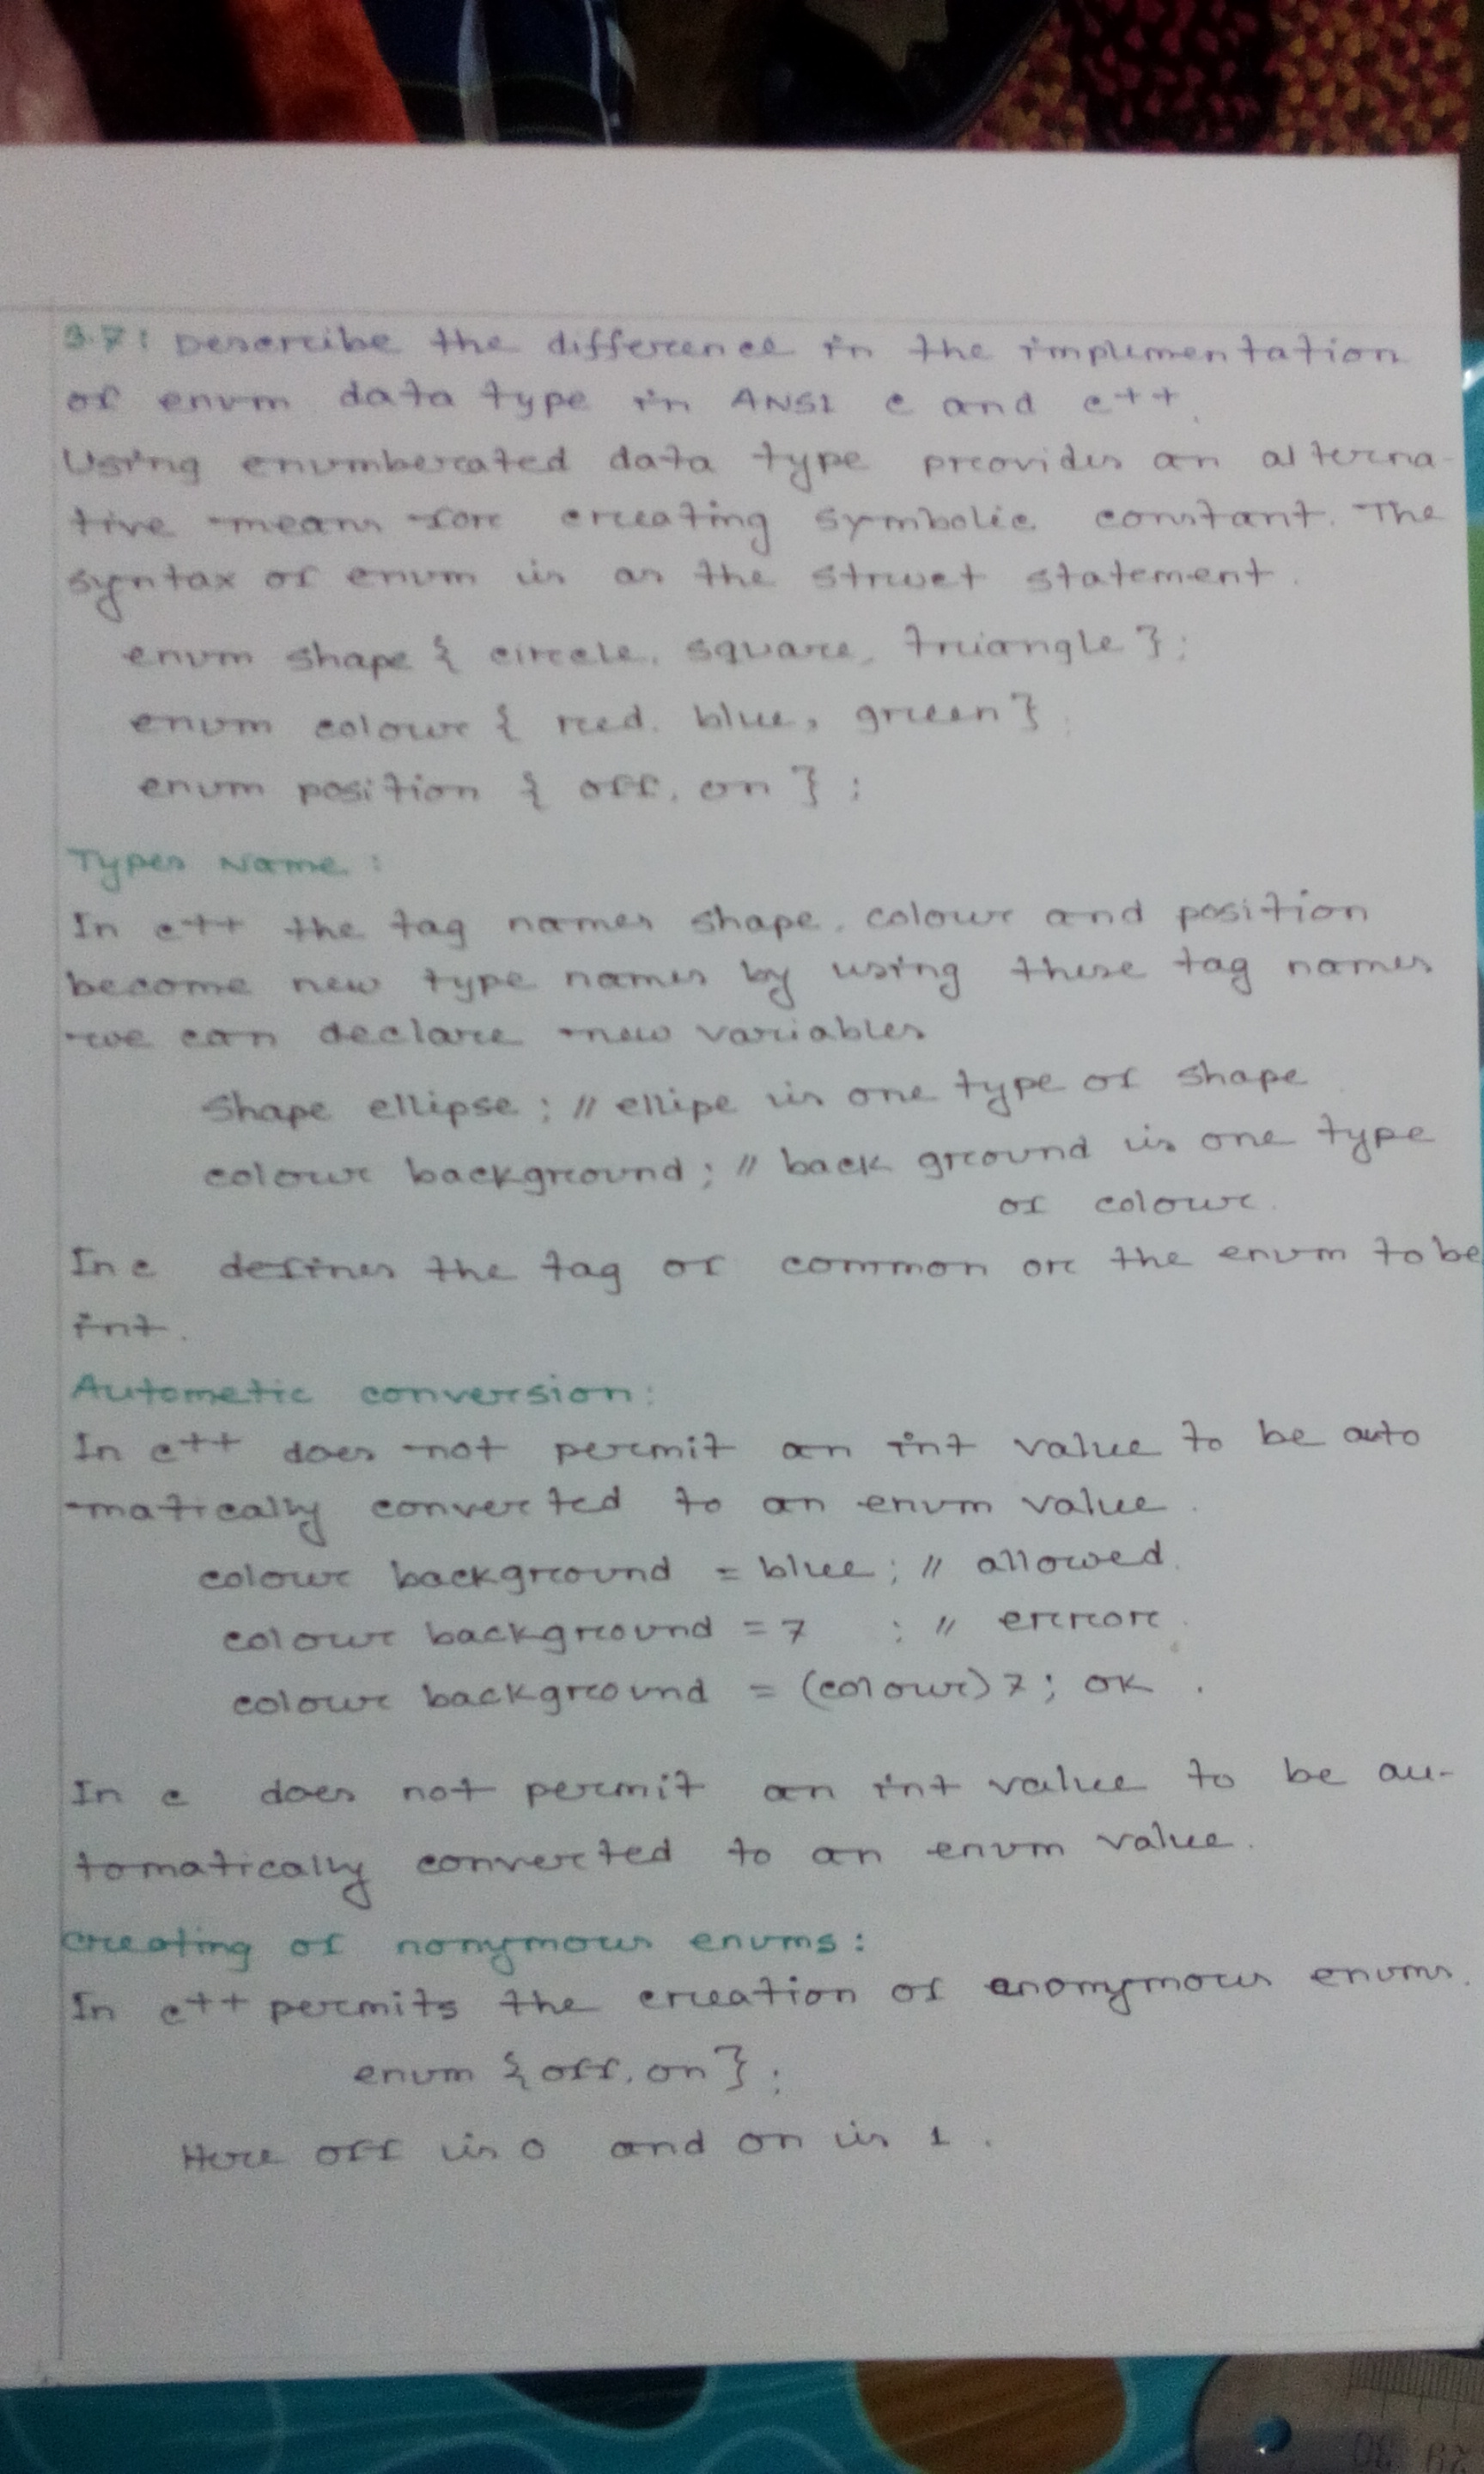 3.7: Describe the difference in the implementation
of enum data type in ANSI C and C++.
Using enumberated data type provides an alterna-
tive means for creating symbolic constant. The
syntax of enum is as the struct statement.
enum shape { circle, square, triangle };
enum colour { red, blue, green };
enum position { off, on };
Types Name:
In C++ the tag names shape, colour and position
become new type names by using these tag names
we can declare new variables
Shape ellipse; // ellipe is one type of shape
colour background; // back ground is one type
of colour.
In C defines the tag of common or the enum to be
int.
Autometic conversion:
In C++ does not permit an int value to be auto
matically converted to an enum value.
colour background = blue; // allowed.
colour background = 7 ; // error.
colour background = (colour) 7; OK .
In C does not permit an int value to be au-
tomatically converted to an enum value.
Creating of nonymous enums:
In C++ permits the creation of anonymous enums.
enum {off, on};
Here off is 0 and on is 1 .
29 30